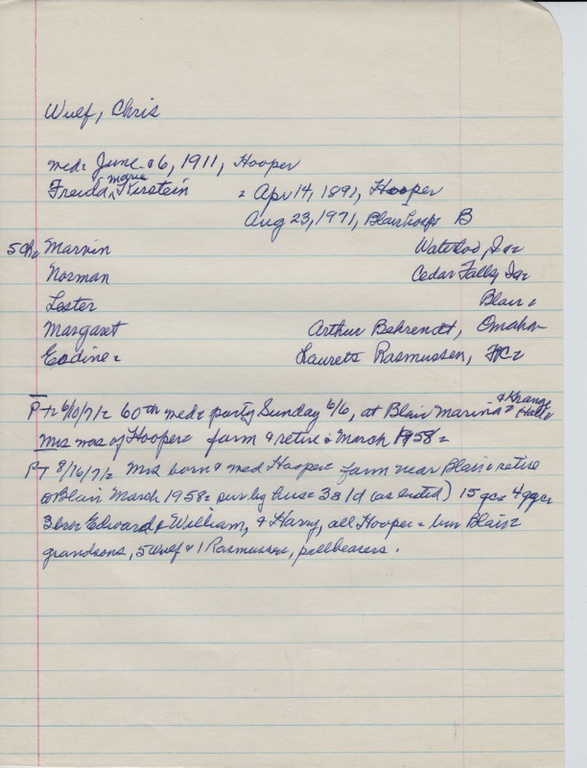 Wulf, Chris
med: June 6, 1911, Hooper
Freida Marie Kerstein : Apr 14, 1891, Hooper
Aug 23, 1971, Blair hosp: B
5 Ch: Marvin Waterloo, Ia:
Norman Cedar Falls, Ia:
Lester Blair:
Margaret Arthur Behrendt, Omaha
Eodine: Laurets Rasmussen, FC:
PT: 6/10/71: 60th med: party Sunday 6/6, at Blair Marina & Krange Hall:
Mrs was of Hooper: farm & retire: March 1958:
PT 8/16/71: Mrs born & med Hooper: farm near Blair: retire
Blair March 1958: sur by hus: 3s 1d (as listed) 15 gc: 4 ggc:
3 bros Edward & William, & Harry, all Hooper: bur Blair:
grandsons, 5 Wulf & 1 Rasmussen, pallbearers.